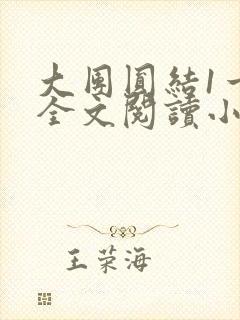 大團圓結1
全文閱讀小
王荣海